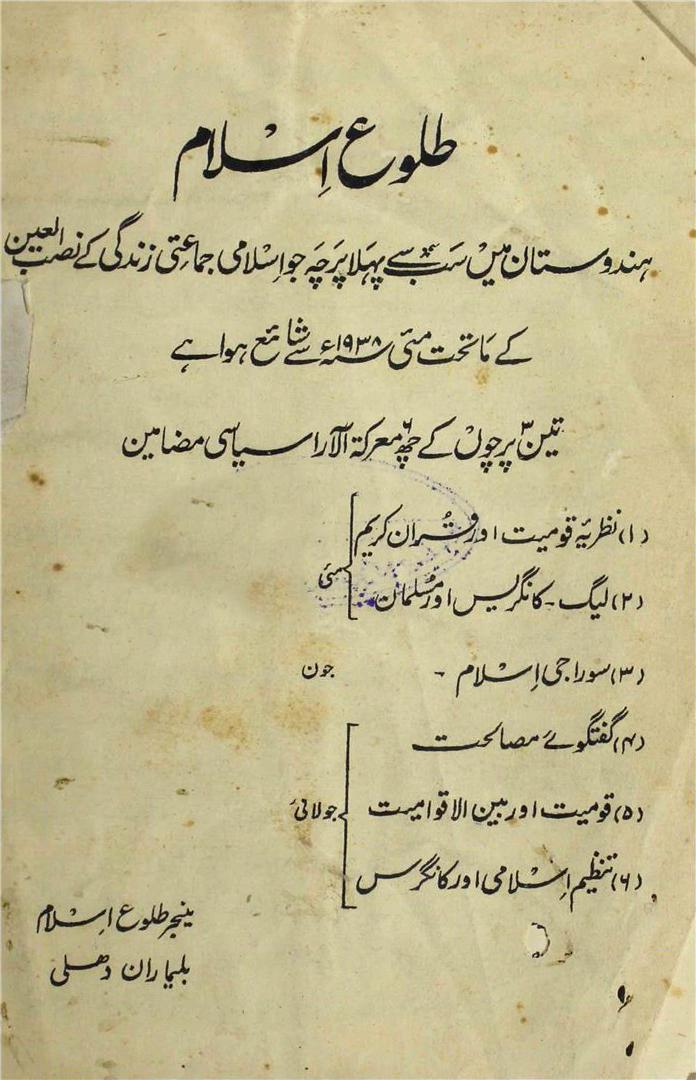 طلوع اسلام
ہندوستان میں سب سے پہلا پرچہ جو اسلامی جماعتی زندگی کے نصب العین
کے ماتحت مئی ۱۹۳۸ء سے شائع ہوا ہے
تین ۳ پرچوں کے چھ ۶ معرکۃ الآرا سیاسی مضامین
(۱) نظریۂ قومیت اور قرآن کریم
(۲) لیگ ۔ کانگریس اور مسلمان
مئی
(۳) سوراجی اسلام ۔ جون
(۴) گفتگوئے مصالحت
(۵) قومیت اور بین الاقوامیت
جولائی
(۶) تنظیم اسلامی اور کانگرس
منیجر طلوع اسلام
بلیماران دھلی